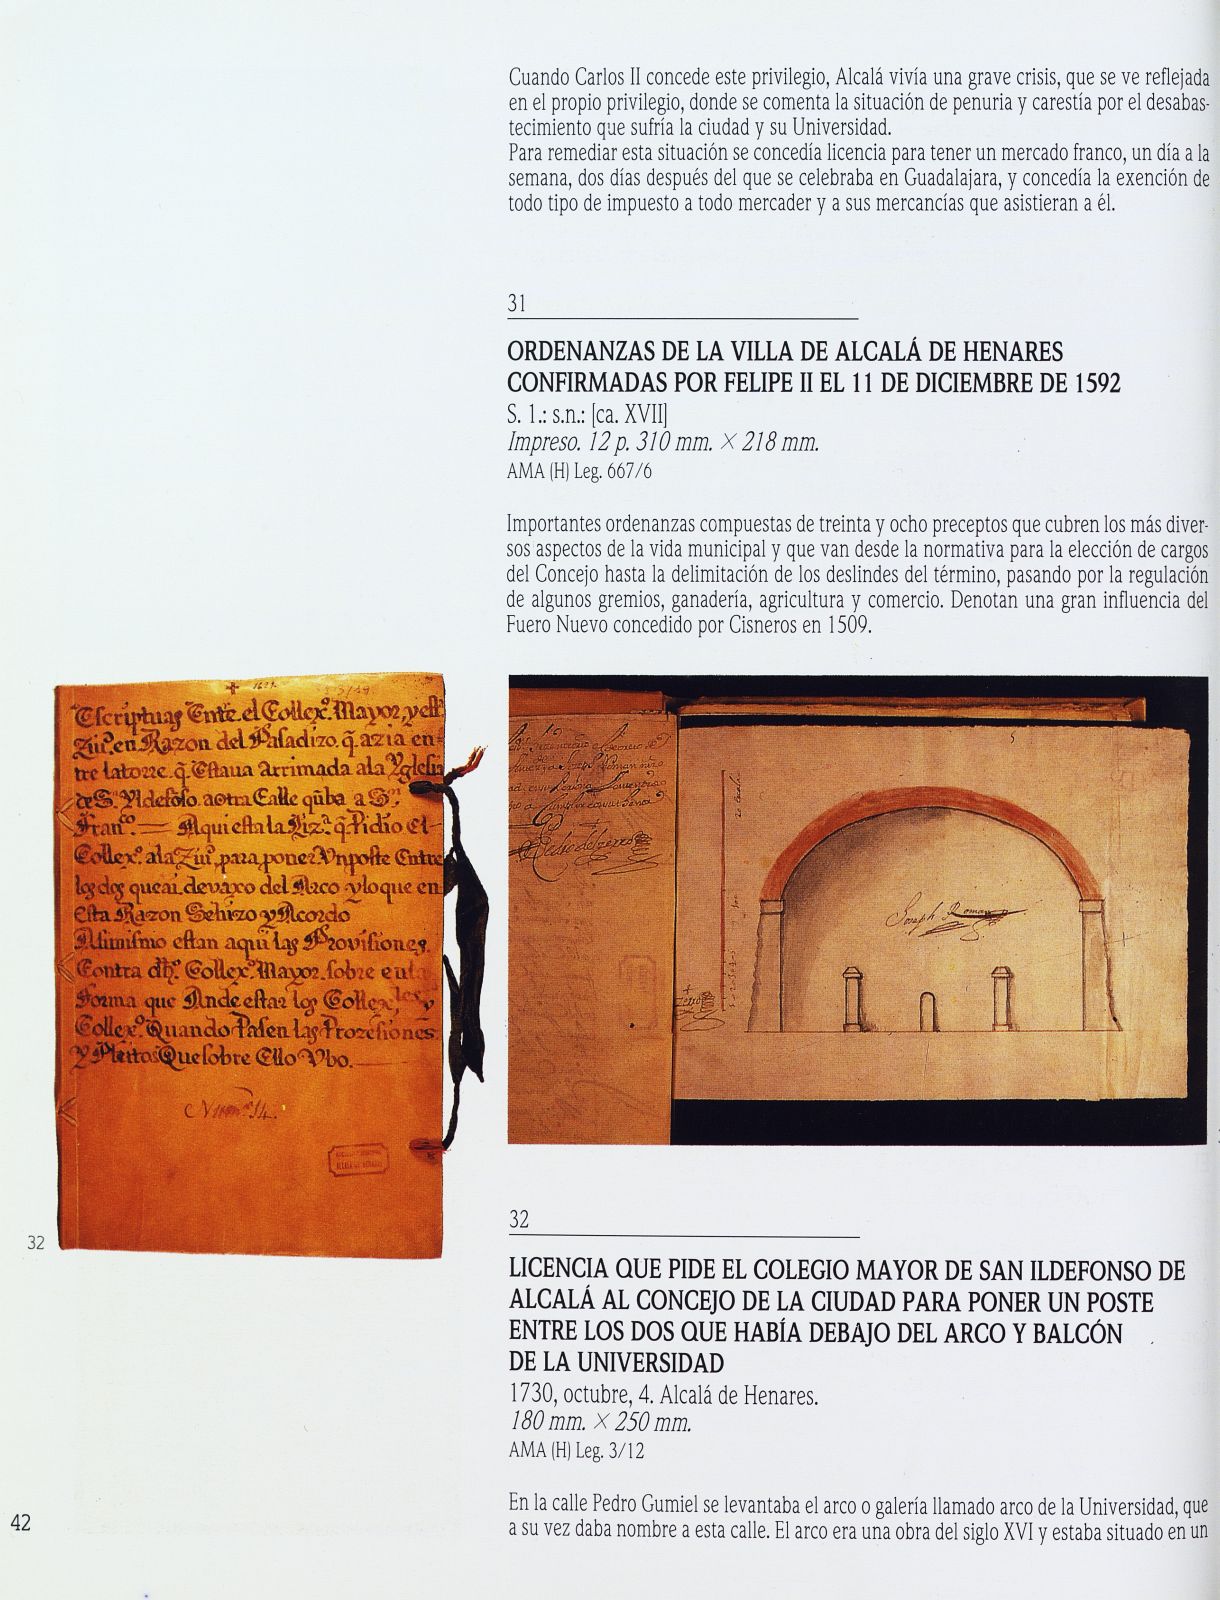 Cuando Carlos II concede este privilegio, Alcalá vivía una grave crisis, que se ve reflejada
en el propio privilegio, donde se comenta la situación de penuria y carestía por el desabas-
tecimiento que sufría la ciudad y su Universidad.
Para remediar esta situación se concedía licencia para tener un mercado franco, un día a la
semana, dos días después del que se celebraba en Guadalajara, y concedía la exención de
todo tipo de impuesto a todo mercader y a sus mercancías que asistieran a él.
31
ORDENANZAS DE LA VILLA DE ALCALÁ DE HENARES
CONFIRMADAS POR FELIPE II EL 11 DE DICIEMBRE DE 1592
S. l.: s.n.: [ca. XVII]
Impreso. 12 p. 310 mm. × 218 mm.
AMA (H) Leg. 667/6
Importantes ordenanzas compuestas de treinta y ocho preceptos que cubren los más diver-
sos aspectos de la vida municipal y que van desde la normativa para la elección de cargos
del Concejo hasta la delimitación de los deslindes del término, pasando por la regulación
de algunos gremios, ganadería, agricultura y comercio. Denotan una gran influencia del
Fuero Nuevo concedido por Cisneros en 1509.
Escripturas Entre el Collexº. Mayor, y esta
Ziuᵈ. en Razon del Pasadizo. q̃ azia en-
tre la torre. q̃. Estaua Arrimada a la Yglesia
de Sⁿ. Yldefoso. a otra Calle q̃ uba a Sⁿ.
Franᶜᵒ. — Aqui esta la Lizᵃ. q̃ Pidio el
Collexº. a la Ziuᵈ. para poner Vn poste Entre
los dos que ai. devaxo del Arco y lo que en
esta Razon Se hizo y Acordo
Asimismo estan aqui las Provisiones.
Contra dhº. Collexº. Mayor. sobre
forma que Ande estar los Collexˡᵉˢ y
Collexº. Quando Pasen las Prozesiones
Y Pleitos Que sobre Ello Vbo.
Numº. 14.
Joseph Roman
32
32
LICENCIA QUE PIDE EL COLEGIO MAYOR DE SAN ILDEFONSO DE
ALCALÁ AL CONCEJO DE LA CIUDAD PARA PONER UN POSTE
ENTRE LOS DOS QUE HABÍA DEBAJO DEL ARCO Y BALCÓN
DE LA UNIVERSIDAD
1730, octubre, 4. Alcalá de Henares.
180 mm. × 250 mm.
AMA (H) Leg. 3/12
En la calle Pedro Gumiel se levantaba el arco o galería llamado arco de la Universidad, que
a su vez daba nombre a esta calle. El arco era una obra del siglo XVI y estaba situado en un
42